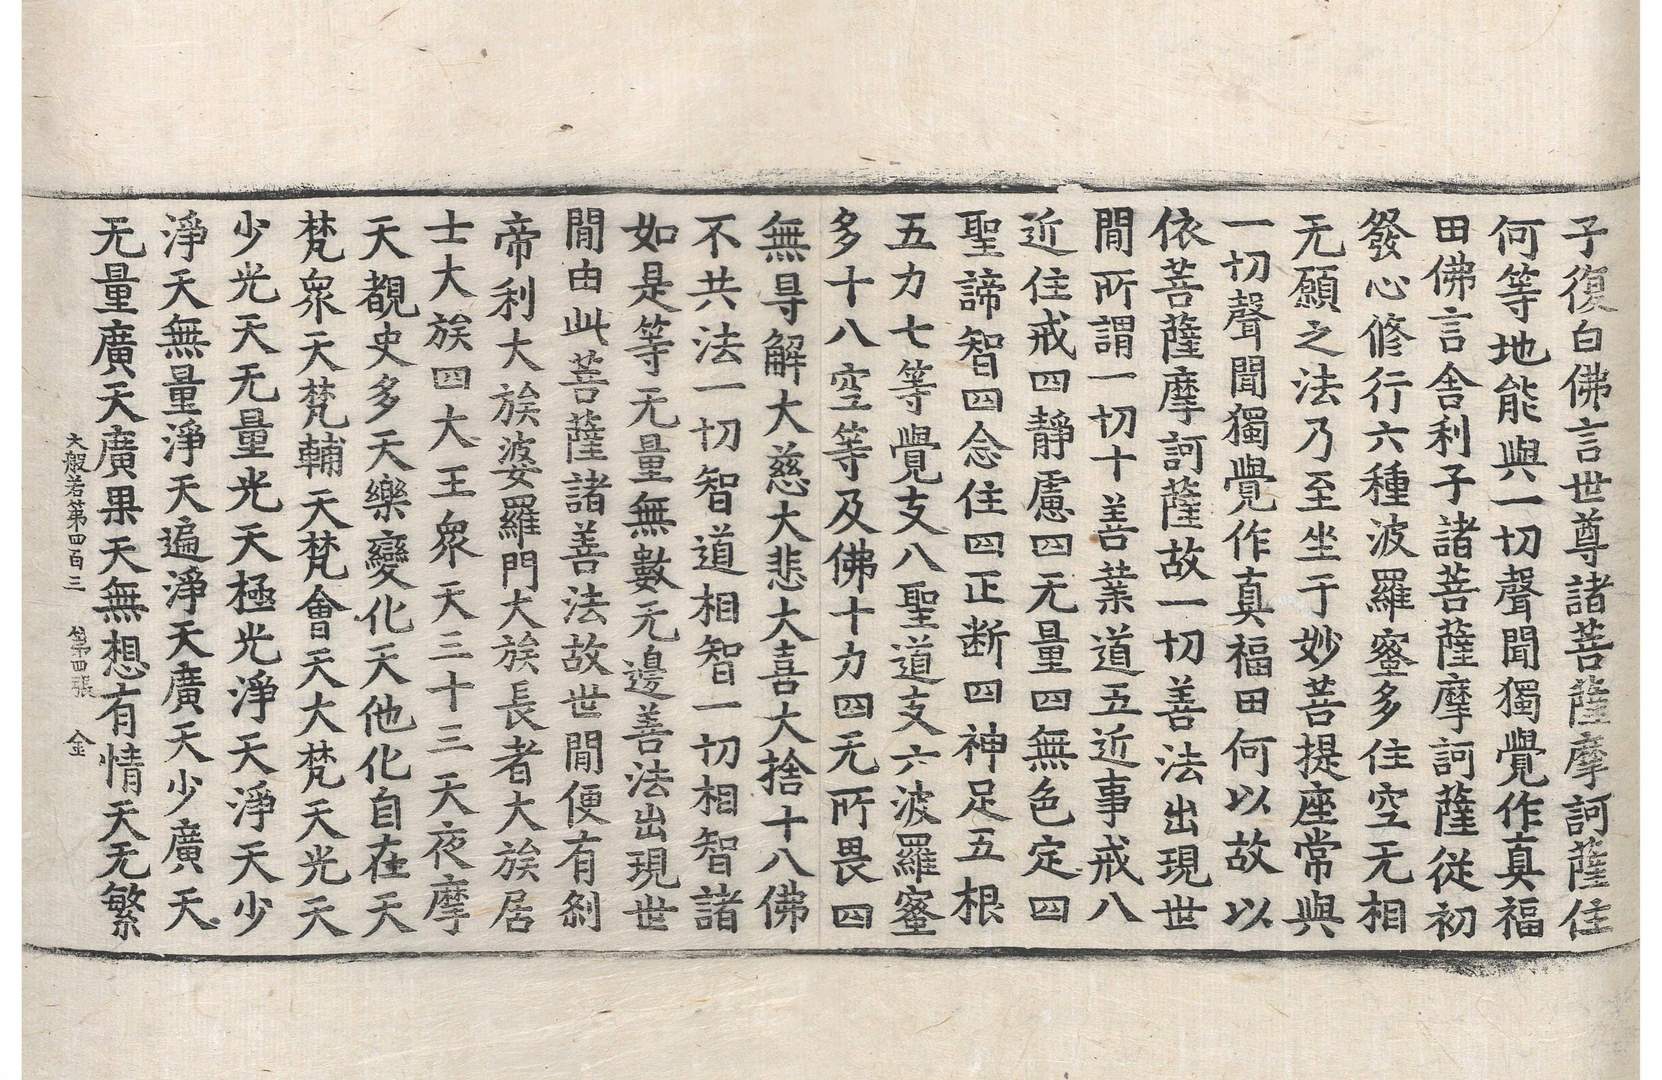 子復白佛言世尊諸菩薩摩訶薩住
何等地能與一切聲聞獨覺作真福
田佛言舍利子諸菩薩摩訶薩從初
發心修行六種波羅蜜多住空无相
无願之法乃至坐于妙菩提座常與
一切聲聞獨覺作真福田何以故以
依菩薩摩訶薩故一切善法出現世
閒所謂一切十善業道五近事戒八
近住戒四靜慮四无量四無色定四
聖諦智四念住四正断四神足五根
五力七等覺支八聖道支六波羅蜜
多十八空等及佛十力四无所畏四
無㝵解大慈大悲大喜大捨十八佛
不共法一切智道相智一切相智諸
如是等无量無數无邊善法出現世
閒由此菩薩諸善法故世閒便有剎
帝利大族婆羅門大族長者大族居
士大族四大王衆天三十三天夜摩
天覩史多天樂變化天他化自在天
梵衆天梵輔天梵會天大梵天光天
少光天无量光天極光淨天淨天少
淨天無量淨天遍淨天廣天少廣天
无量廣天廣果天無想有情天无繁
大般若第四百三 第四張 金